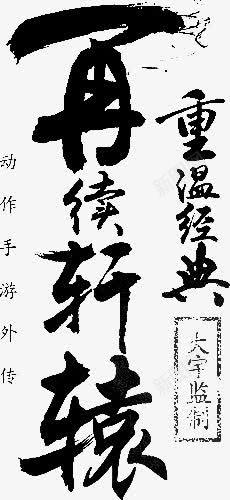 重温经典
大宇监制
再续轩辕
动作手游外传